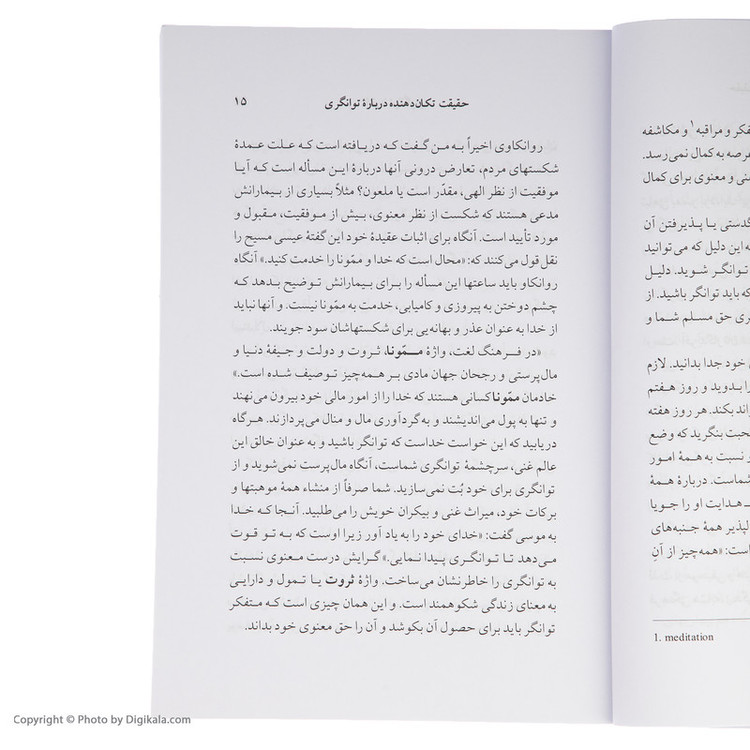 تفکر و مراقبه۱ و مکاشفه
عرصه به کمال نمی‌رسد.
و معنوی برای کمال
یا پذیرفتن آن
این دلیل که می‌توانید
توانگر شوید. دلیل
که باید توانگر باشید. از
حق مسلم شما و
خود جدا بدانید. لازم
را بدوید و روز هفتم
بکند. هر روز هفته
محبت بنگرید که وضع
و نسبت به همهٔ امور
شماست. دربارهٔ همهٔ
هدایت او را جویا
همهٔ جنبه‌های
است: «همه‌چیز از آنِ
1. meditation
حقیقت تکان‌دهنده دربارهٔ توانگری ۱۵
روانکاوی اخیراً به من گفت که دریافته است که علت عمدهٔ
شکستهای مردم، تعارض درونی آنها دربارهٔ این مسأله است که آیا
موفقیت از نظر الهی، مقدّر است یا ملعون؟ مثلاً بسیاری از بیمارانش
مدعی هستند که شکست از نظر معنوی، بیش از موفقیت، مقبول و
مورد تأیید است. آنگاه برای اثبات عقیدهٔ خود این گفتهٔ عیسی مسیح را
نقل قول می‌کنند که: «محال است که خدا و ممّونا را خدمت کنید.» آنگاه
روانکاو باید ساعتها این مسأله را برای بیمارانش توضیح بدهد که
چشم دوختن به پیروزی و کامیابی، خدمت به ممّونا نیست. و آنها نباید
از خدا به عنوان عذر و بهانه‌یی برای شکستهاشان سود جویند.
«در فرهنگ لغت، واژهٔ ممّونا، ثروت و دولت و جیفهٔ دنیا و
مال‌پرستی و رجحان جهان مادی بر همه‌چیز توصیف شده است.»
خادمان ممّونا کسانی هستند که خدا را از امور مالی خود بیرون می‌نهند
و تنها به پول می‌اندیشند و به گردآوری مال و منال می‌پردازند. هرگاه
دریابید که این خواست خداست که توانگر باشید و به عنوان خالق این
عالم غنی، سرچشمهٔ توانگری شماست، آنگاه مال‌پرست نمی‌شوید و از
توانگری برای خود بُت نمی‌سازید. شما صرفاً از منشاء همهٔ موهبتها و
برکات خود، میراث غنی و بیکران خویش را می‌طلبید. آنجا که خدا
به موسی گفت: «خدای خود را به یاد آور زیرا اوست که به تو قوت
می‌دهد تا توانگری پیدا نمایی.» گرایش درست معنوی نسبت
به توانگری را خاطرنشان می‌ساخت. واژهٔ ثروت یا تمول و دارایی
به معنای زندگی شکوهمند است. و این همان چیزی است که متفکر
توانگر باید برای حصول آن بکوشد و آن را حق معنوی خود بداند.
Copyright © Photo by Digikala.com